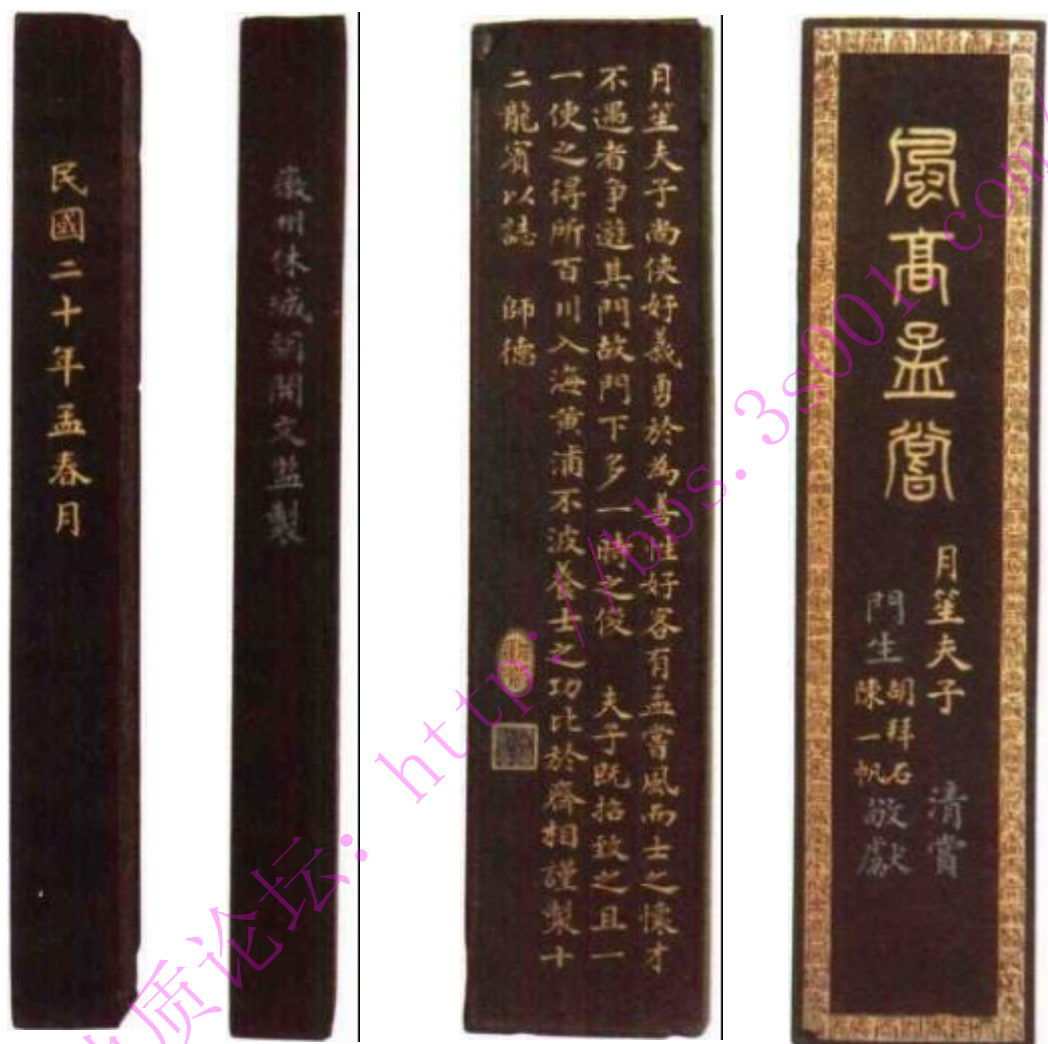 民國二十年孟春月
徽州休城胡開文監製
月笙夫子尚俠好義勇於為善性好客有孟嘗風而士之懷才
不遇者爭遊其門故門下多一時之俊 夫子既招致之且一
一使之得所百川入海黃浦不波養士之功比於齊相謹製十
二龍賓以誌 師德
風高孟嘗
月笙夫子 清賞
門生 胡拜石 陳一帆 敬獻
质论坛: http://bbs.3s001.com/